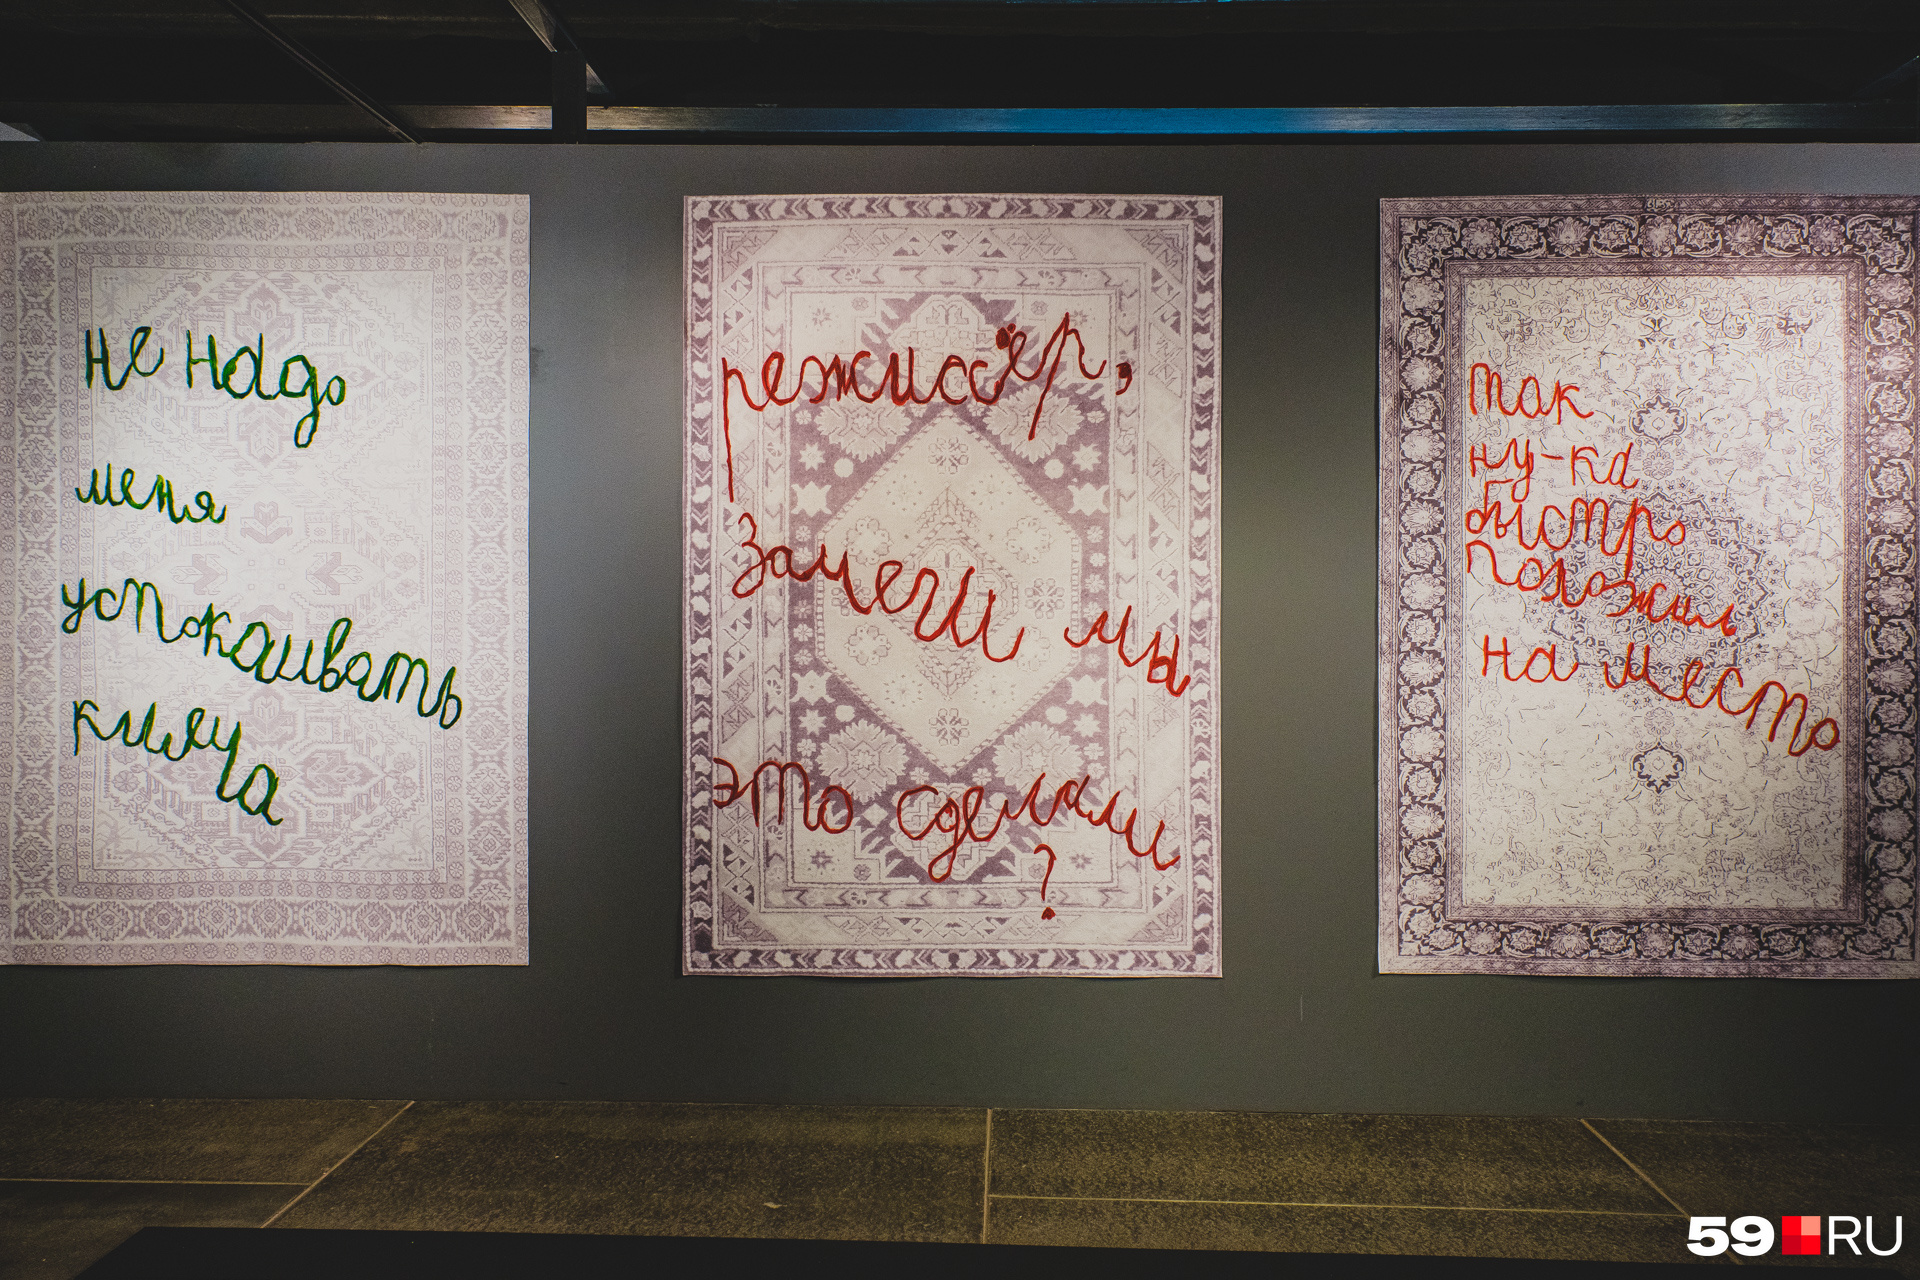 не надо
меня
успокаивать
киляча
режиссёр,
Зачеги мы
это сделали
?
так
ну-ка
быстро
положил
на место
59 RU